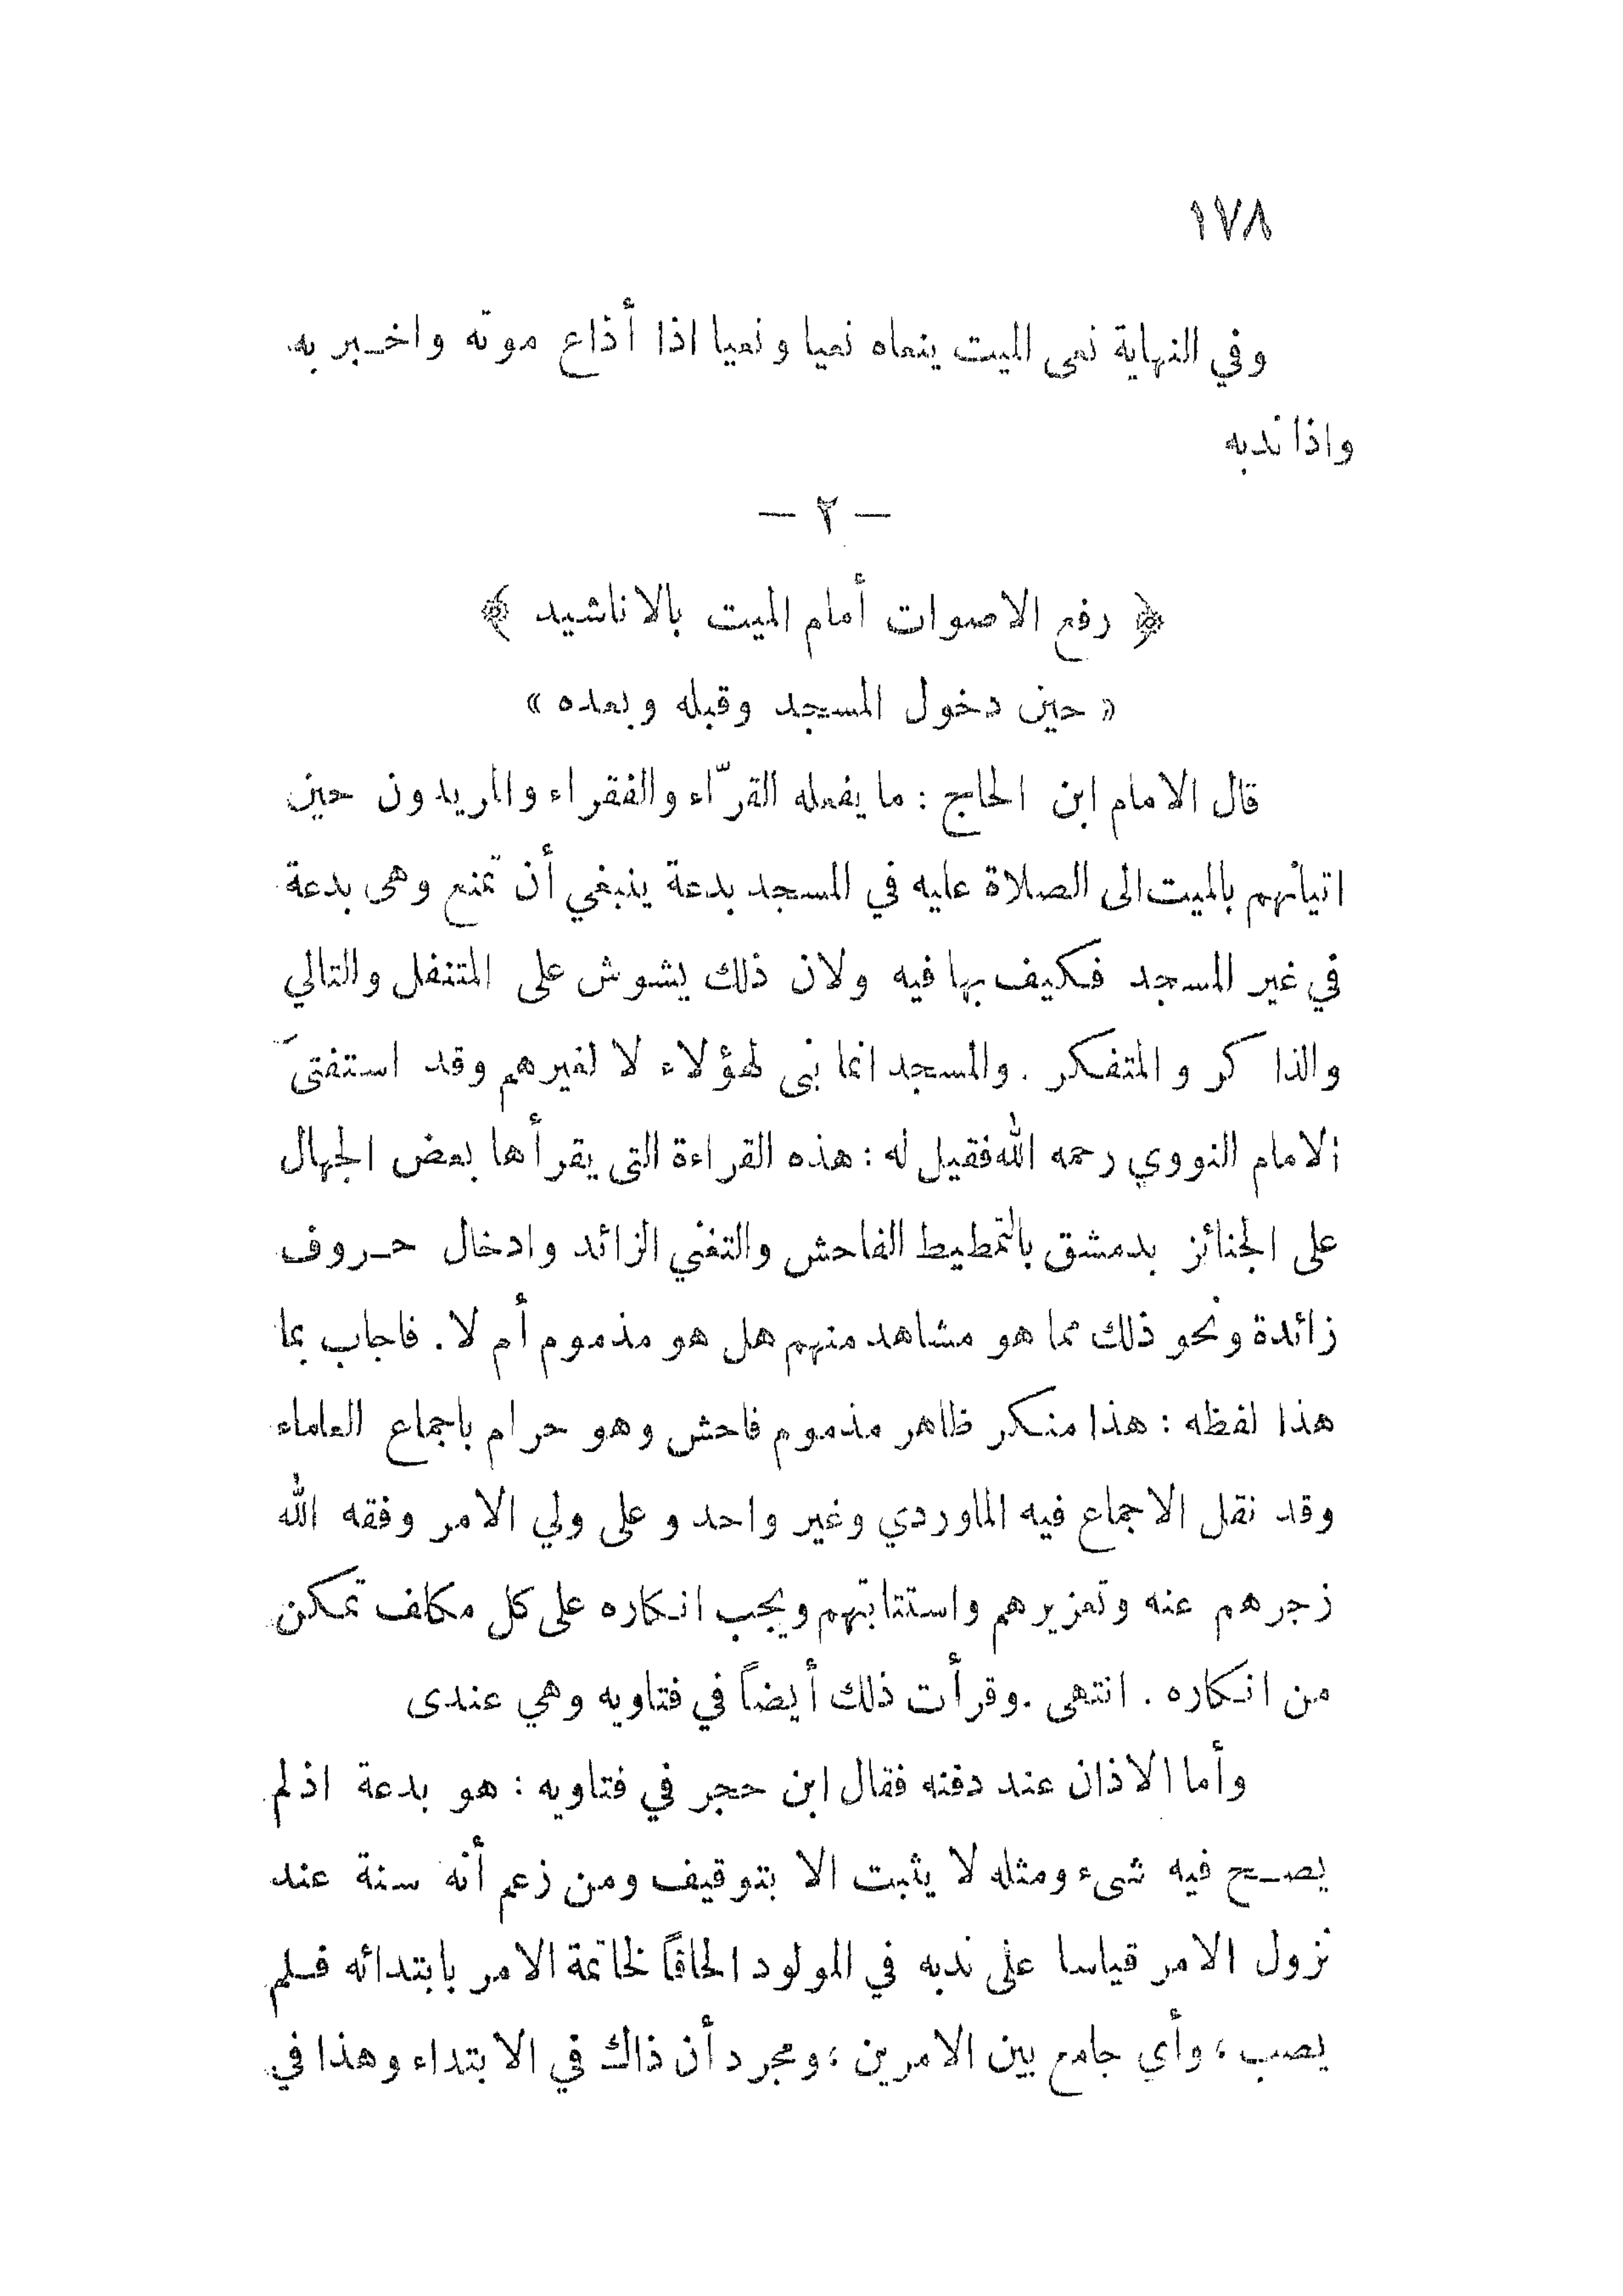 ١٧٨
وفي النهاية نعى الميت ينعاه نعيا ونعيا اذا أذاع موته واخبر به
واذا ندبه
— ٢ —
﴿ رفع الاصوات أمام الميت بالاناشيد ﴾
« حين دخول المسجد وقبله وبعده »
قال الامام ابن الحاج : ما يفعله القرّاء والفقراء والمريدون حين
اتيانهم بالميت الى الصلاة عليه في المسجد بدعة ينبغي أن تمنع وهى بدعة
في غير المسجد فكيف بها فيه ولان ذلك يشوش على المتنفل والتالي
والذاكر والمتفكر . والمسجد انما بنى لهؤلاء لا لغيرهم وقد استفتىَ
الامام النووي رحمه الله فقيل له : هذه القراءة التى يقرأها بعض الجهال
على الجنائز بدمشق بالتمطيط الفاحش والتغني الزائد وادخال حروف
زائدة ونحو ذلك مما هو مشاهد منهم هل هو مذموم أم لا . فاجاب بما
هذا لفظه : هذا منكر ظاهر مذموم فاحش وهو حرام باجماع العلماء
وقد نقل الاجماع فيه الماوردي وغير واحد وعلى ولي الامر وفقه الله
زجرهم عنه وتعزيرهم واستتابتهم ويجب انكاره على كل مكلف تمكن
من انكاره . انتهى . وقرأت ذلك أيضاً في فتاويه وهي عندى
وأما الاذان عند دفنه فقال ابن حجر في فتاويه : هو بدعة اذ لم
يصح فيه شىء ومثله لا يثبت الا بتوقيف ومن زعم أنه سنة عند
نزول الامر قياسا على ندبه في المولود الحاقاً لخاتمة الامر بابتدائه فلم
يصب ، وأي جامع بين الامرين ، ومجرد أن ذاك في الابتداء وهذا في